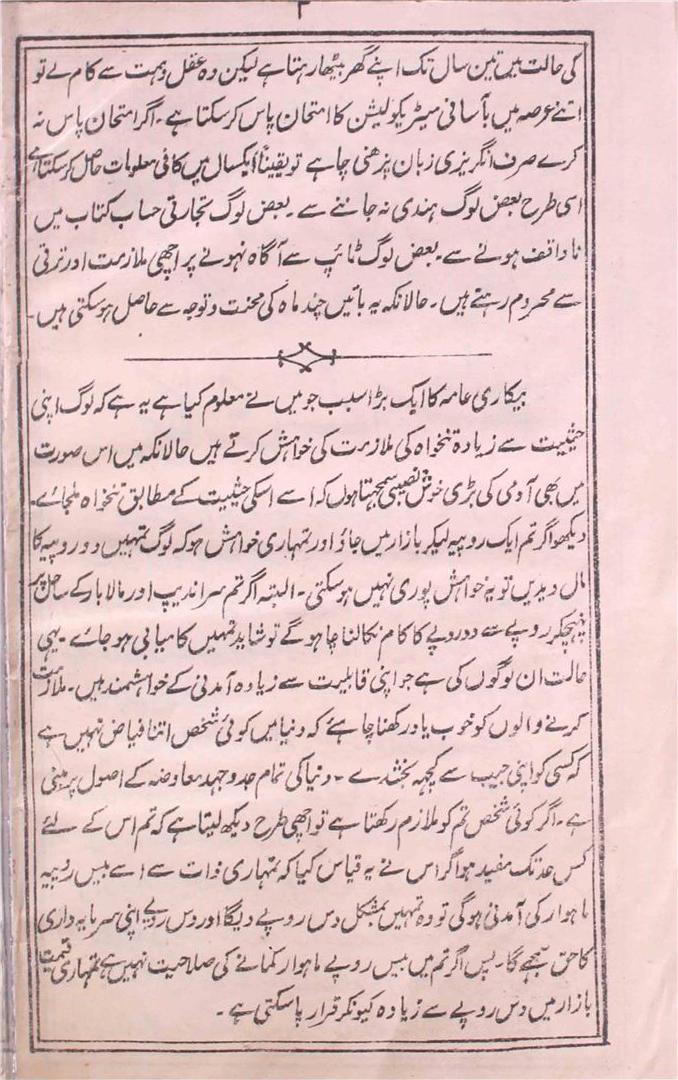 ۳
کی حالت میں تین سال تک اپنے گھر بیٹھا رہتا ہے لیکن وہ عقل و ہمت سے کام لے تو
اتنے عرصہ میں بآسانی میٹریکولیشن کا امتحان پاس کر سکتا ہے۔ اگر امتحان پاس نہ
کرے صرف انگریزی زبان پڑھنی چاہے تو یقیناً ایکسال میں کافی معلومات حاصل کر سکتا ہے
اسی طرح بعض لوگ ہندی نہ جاننے سے۔ بعض لوگ تجارتی حساب کتاب میں
ناواقف ہونے سے۔ بعض لوگ ٹائپ سے آگاہ نہونے پر اچھی ملازمت اور ترقی
سے محروم رہتے ہیں۔ حالانکہ یہ باتیں چند ماہ کی محنت و توجہ سے حاصل ہو سکتی ہیں۔
بیکاری عامہ کا ایک بڑا سبب جو میں نے معلوم کیا ہے یہ ہے کہ لوگ اپنی
حیثیت سے زیادہ تنخواہ کی ملازمت کی خواہش کرتے ہیں حالانکہ میں اس صورت
میں بھی آدمی کی بڑی خوش نصیبی سمجہتا ہوں کہ اسے اسکی حیثیت کے مطابق تنخواہ ملجائے۔
دیکھو اگر تم ایک روپیہ لیکر بازار میں جاؤ اور تمہاری خواہش ہو کہ لوگ تمہیں دو روپیہ کا
مال دیدیں تو یہ خواہش پوری نہیں ہو سکتی۔ البتہ اگر تم سراندیپ اور مالابار کے ساحل پر
پہنچکر روپے سے دو روپے کا کام نکالنا چاہو گے تو شاید تمہیں کامیابی ہو جائے۔ یہی
حالت ان لوگوں کی ہے جو اپنی قابلیت سے زیادہ آمدنی کے خواہشمند ہیں۔ ملازمت
کرنے والوں کو خوب یاد رکھنا چاہئے کہ دنیا میں کوئی شخص اتنا فیاض نہیں ہے
کہ کسی کو اپنی جیب سے کچہہ بخشدے۔ دنیا کی تمام جد و جہد معاوضہ کے اصول پر مبنی
ہے۔ اگر کوئی شخص تم کو ملازم رکھتا ہے تو اچھی طرح دیکھ لیتا ہے کہ تم اس کے لئے
کس حد تک مفید ہو اگر اس نے یہ قیاس کیا کہ تمہاری ذات سے اسے بیس روپیہ
ماہوار کی آمدنی ہوگی تو وہ تمہیں بمشکل دس روپے دیگا اور دس روپے اپنی سرمایہ داری
کا حق سمجہے گا۔ پس اگر تم میں بیس روپے ماہوار کمانے کی صلاحیت نہیں ہے تمہاری قیمت
بازار میں دس روپے سے زیادہ کیونکر قرار پا سکتی ہے۔